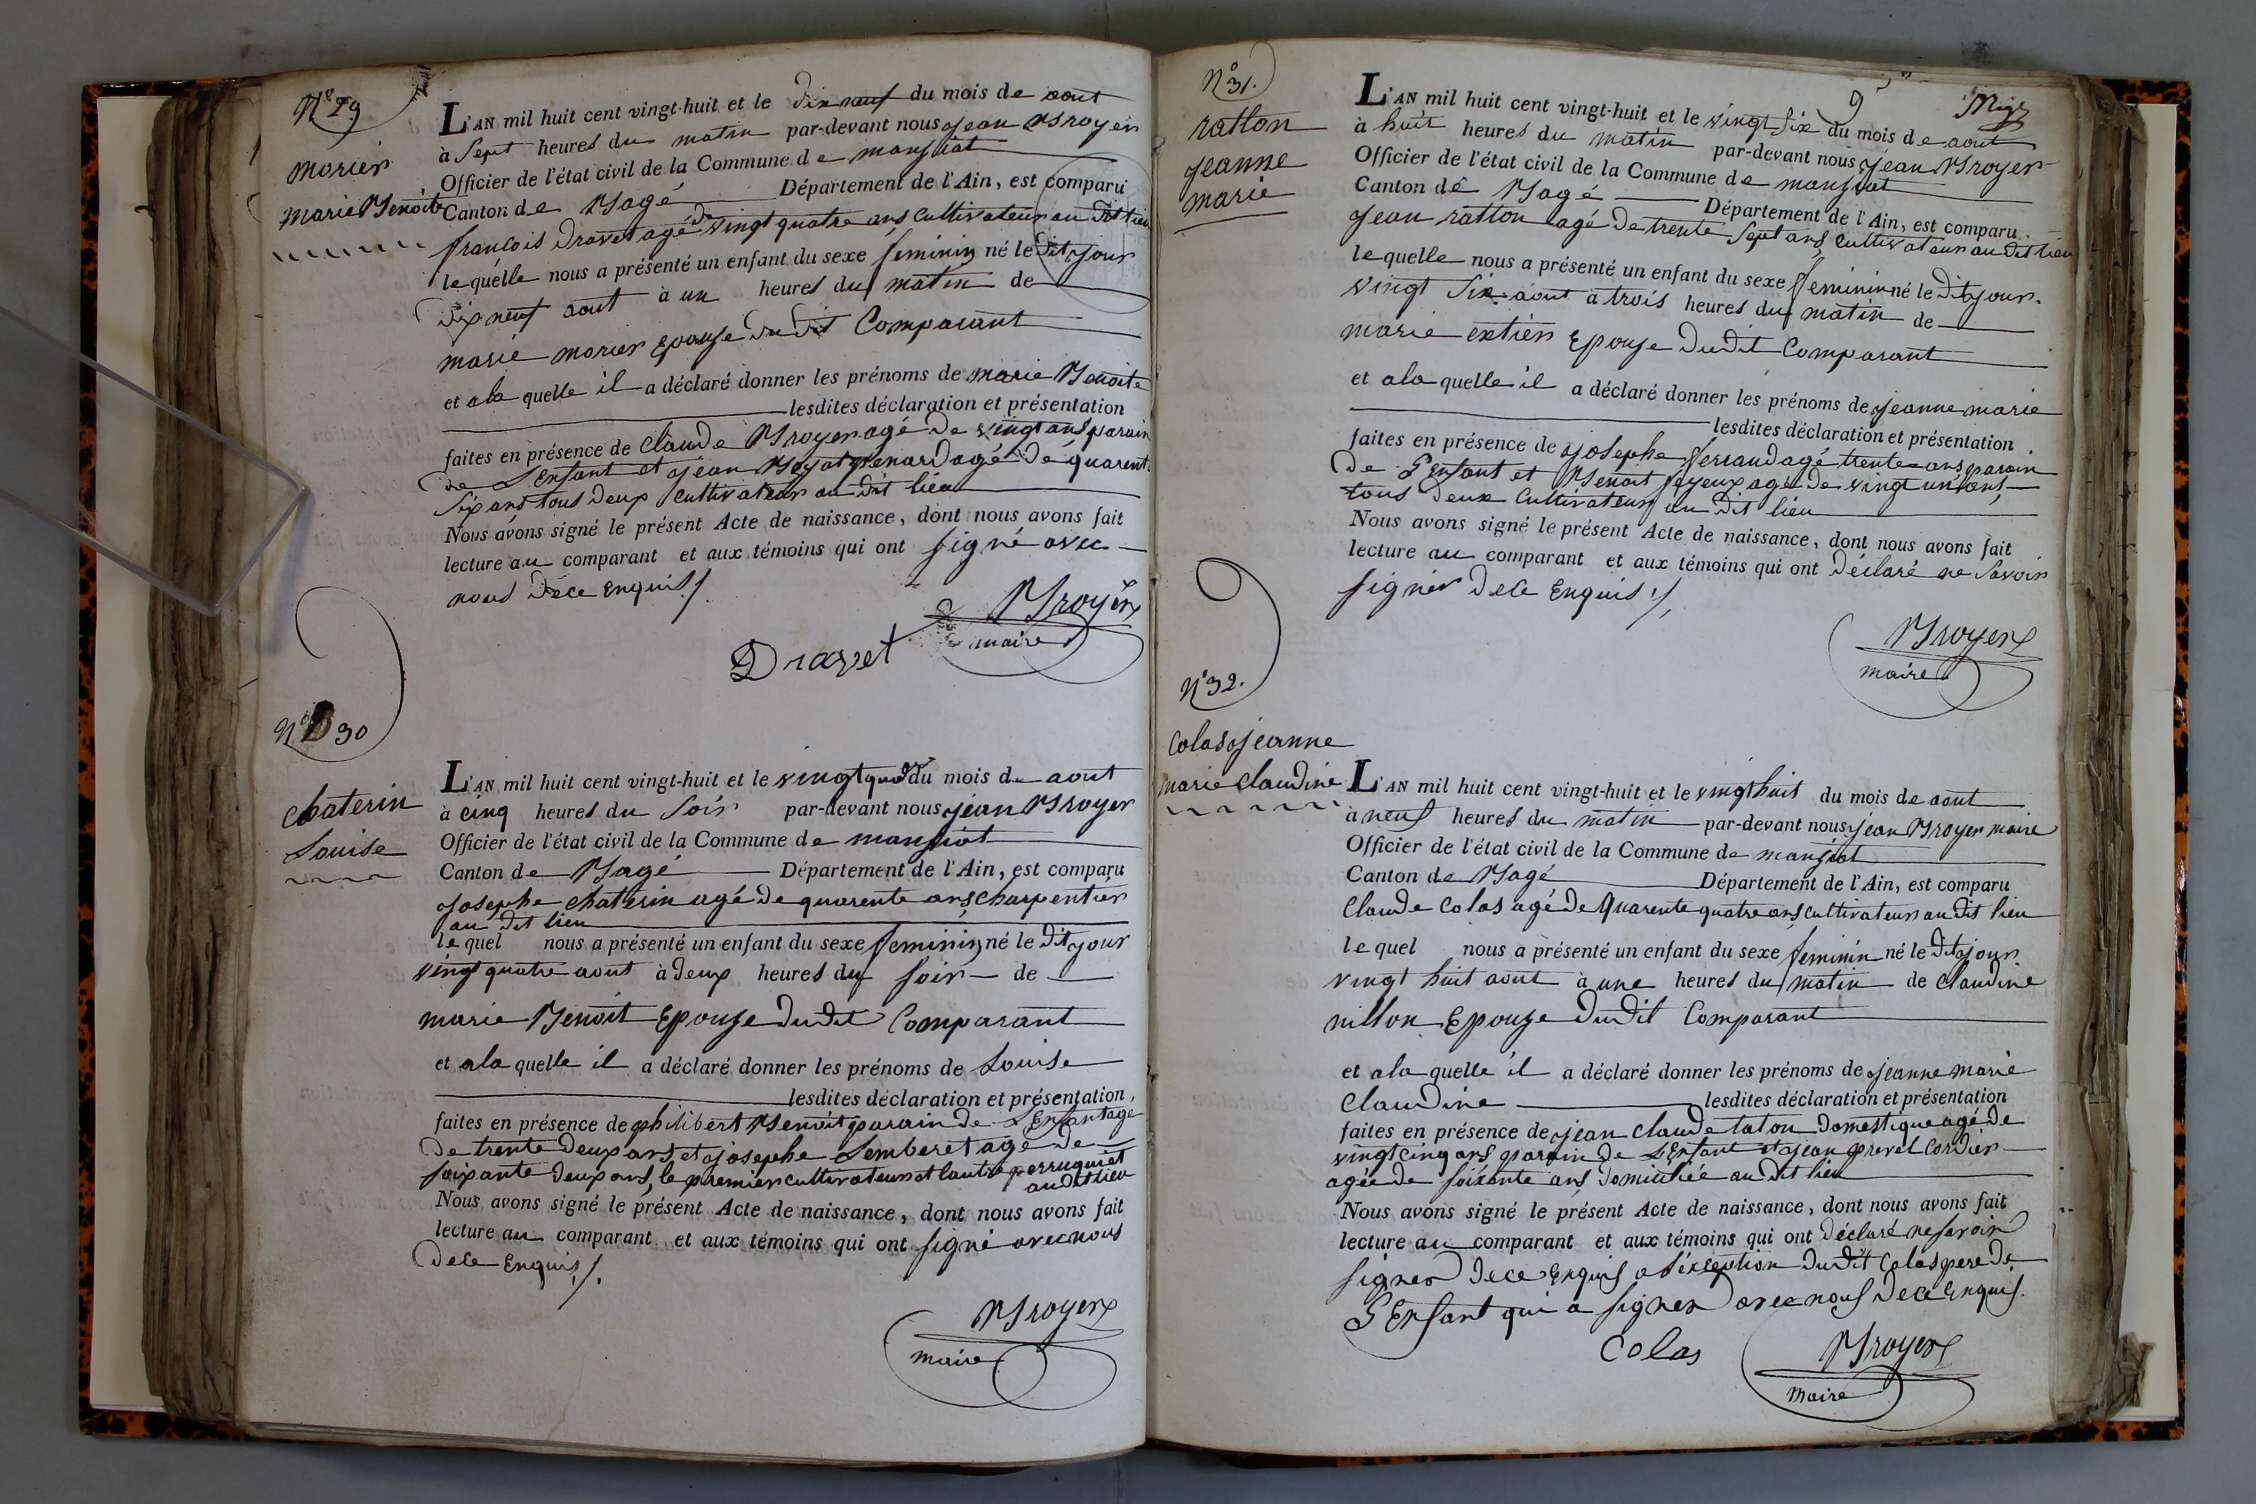 N° 29
morier
marie Benoite
L'AN mil huit cent vingt-huit et le dix neuf du mois de aout
à Sept heures du matin par-devant nous jean Broyer
Officier de l'état civil de la Commune de manziat
Canton de Bagé Département de l'Ain, est comparu
francois Dravet agé de vingt quatre ans Cultivateur au dit lieu
lequelle nous a présenté un enfant du sexe feminin né le dit jour
dix neuf aout à un heures du matin de
marie morier epouse du dit Comparant
et a la quelle il a déclaré donner les prénoms de marie Benoite
lesdites déclaration et présentation
faites en présence de claude Broyer agé de vingt ans parain
de L'Enfant et jean Boyat renard agé de quarent
six ans tous deux Cultivateur au dit lieu
Nous avons signé le présent Acte de naissance, dont nous avons fait
lecture au comparant et aux témoins qui ont signé avec
nous Dece enquis
Broyer
maire
Dravet
N° 30
chaterin
Louise
L'AN mil huit cent vingt-huit et le vingt quatre du mois de aout
à cinq heures du Soir par-devant nous jean Broyer
Officier de l'état civil de la Commune de manziat
Canton de Bagé Département de l'Ain, est comparu
josephe chaterin agé de quarente ans charpentier
au dit lieu
lequel nous a présenté un enfant du sexe feminin né le dit jour
vingt quatre aout à deux heures du soir de
marie Benoit Epouse dudit Comparant
et a la quelle il a déclaré donner les prénoms de Louise
lesdites déclaration et présentation,
faites en présence de philibert Benoit parain de L'Enfant age
de trente deux ans et josephe Lemberet agé de
soixante deux ans, le premier cultivateur et lautre perruquiet
au dit lieu
Nous avons signé le présent Acte de naissance, dont nous avons fait
lecture au comparant et aux témoins qui ont signé avec nous
Dece Enquis
Broyer
maire
N° 31.
ratton
jeanne
marie
L'AN mil huit cent vingt-huit et le vingt six du mois de aout
à huit heures du matin par-devant nous jean Broyer
Officier de l'état civil de la Commune de manziat
Canton de Bagé Département de l'Ain, est comparu
jean ratton agé de trente sept ans cultivateur au dit lieu
lequelle nous a présenté un enfant du sexe feminin né le dit jour
vingt six aout à trois heures du matin de
marie extier Epouse dudit Comparant
et a la quelle il a déclaré donner les prénoms de jeanne marie
lesdites déclaration et présentation
faites en présence de josephe ferraud agé trente ans parain
de L'enfant et Benoit feyeux agé de vingt un ans
tous deux Cultivateur au dit lieu
Nous avons signé le présent Acte de naissance, dont nous avons fait
lecture au comparant et aux témoins qui ont déclaré ne Savoir
signer dece Enquis
Broyer
maire
N° 32.
Colas jeanne
marie claudine
L'AN mil huit cent vingt-huit et le vingt huit du mois de aout
à neuf heures du matin par-devant nous jean Broyer maire
Officier de l'état civil de la Commune de manziat
Canton de Bagé Département de l'Ain, est comparu
Claude Colas agé de Quarente quatre ans cultivateur au dit lieu
lequel nous a présenté un enfant du sexe feminin né le dit jour
vingt huit aout à une heures du matin de claudine
nillon Epouse dudit Comparant
et a la quelle il a déclaré donner les prénoms de jeanne marie
Claudine lesdites déclaration et présentation
faites en présence de jean claude taton domestique agé de
vingt cinq ans parain de L'Enfant et jean prevel Cordier
agée de soixante ans domiciliée au dit lieu
Nous avons signé le présent Acte de naissance, dont nous avons fait
lecture au comparant et aux témoins qui ont déclaré ne savoir
signer Dece Enquis a l'exception du dit Colas pere de
L'Enfant qui a signer avec nous Dece Enquis.
Colas
Broyer
maire